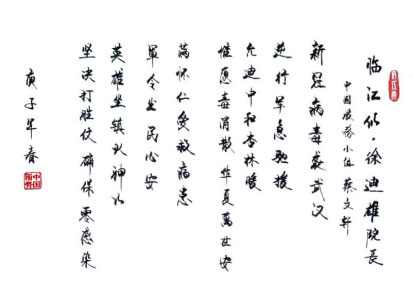 临江仙·徐迪雄院长
中国股务小伍 蔡文轩
新冠病毒袭武汉
逆行早急驰援
允迪中和杏林暖
惟愿毒消散 华夏万世安
满怀仁爱救病患
军令出 民心安
英雄坐镇次神火
坚决打胜仗 确保零感染
庚子年春